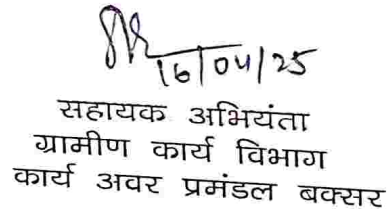 16/04/25
सहायक अभियंता
ग्रामीण कार्य विभाग
कार्य अवर प्रमंडल बक्सर